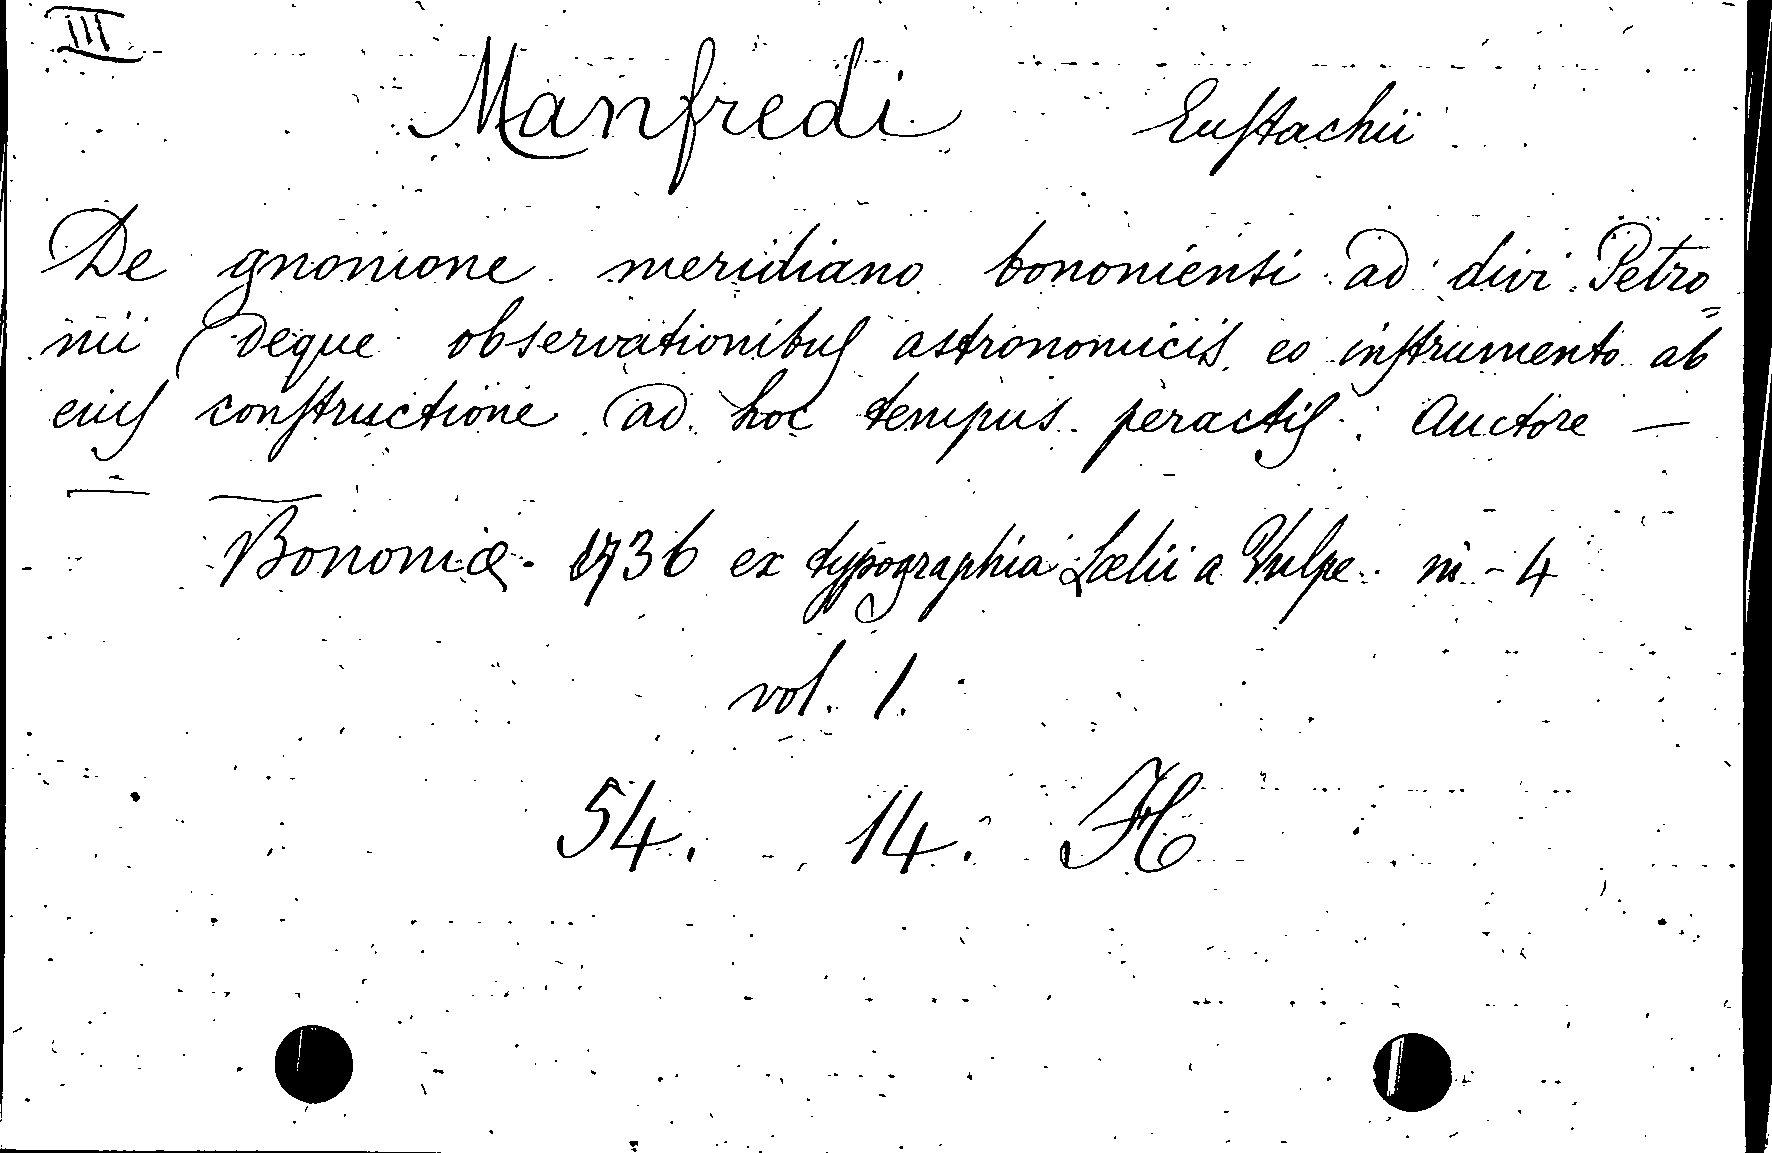 III
Manfredi Eustachii
De gnomone meridiano bononiensi ad divi Petro=
nii deque observationibus astronomicis eo instrumento ab
eius constructione ad hoc tempus peractis. Auctore —
— —
Bononiæ. 1736 ex typographia Lælii a Vulpe in-4
vol. 1.
54. 14. H